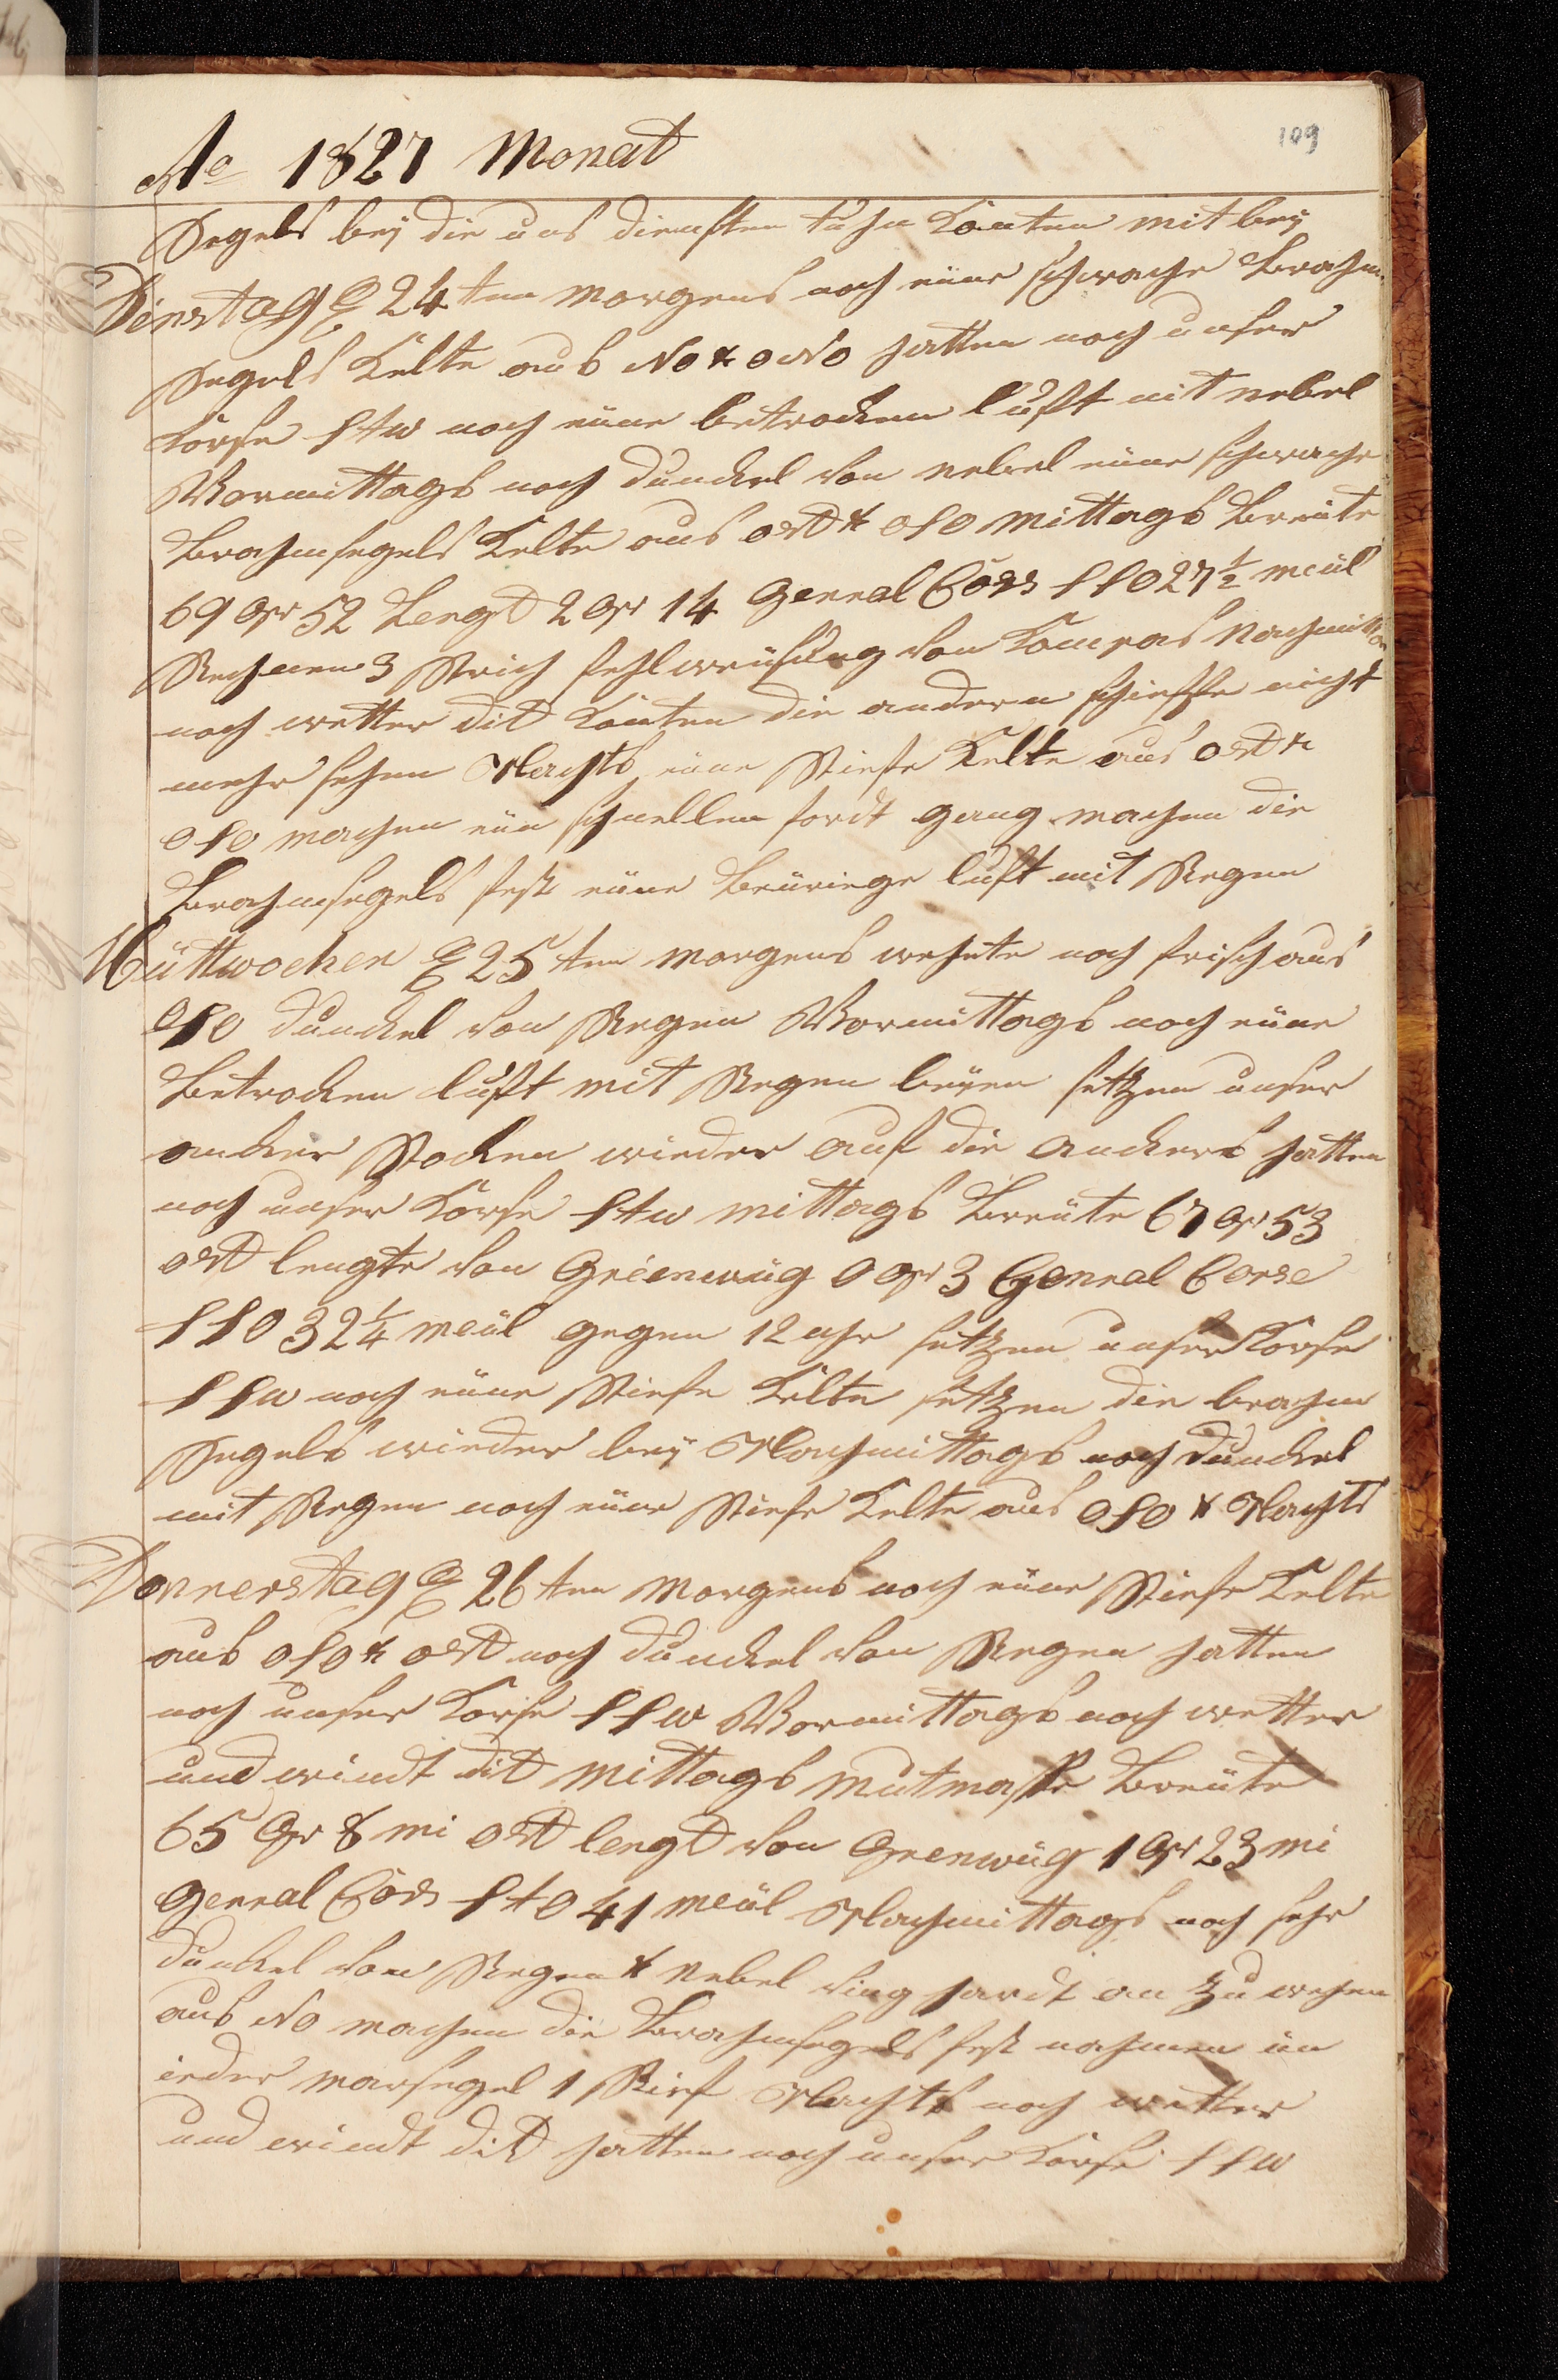 109
Ao 1827 Monat
Segels beÿ die uns diensten tuhn könten mit beÿ
Dinstag D 24 ten Morgens noch eüne schwache Brahm
Segels Kelte aus No & oNo hatten noch unser
Körse Stw noch eüne betrocken luft mit nebel
Vormittags noch dunckel von nebel eüne schwache
Brahmsegels Kelte aus ost & oSo Mittags Breüte
69 Gr 52 Lengt 2 Gr 14 Genral Cors SSO 27 1/2 meül
Rechnen 3 Strich fehlweüsung von Kompas Nachmittags
noch wetter dit könten die andern schieffe nicht
mehr sehen Nachts eüne Stiefe Kelte aus ost &
oSo machen eün schnellen fordt gang machen die
Brahmsegels fest eüne Beüriege luft mit Regen
Müttwochen D 25 ten Morgens wehete noch frisch aus
oSo dunckel von Regen Vormittags noch eüne
Betrocken luft mit Regen beÿen setzen unser
ancker Stocken wieder auf die anckers hatten
noch unser Körse Stw mittags Breüte 67 Gr 53
ost lengte von Greenwüg 0 Gr 3 Genral Corse
SSO 32 1/4 meül gegen 12 uhr setzen unser Körse
SSw noch eüne Stiefe Kelte setzen die brahm
Segels wieder beÿ Nachmittags noch dunckel
mit Regen noch eüne Stiefe Kelte aus oSo & Nachts
Donnerstag D 26 ten Morgens noch eüne Stiefe Kelte
aus oSo & ost noch dunckel von Regen hatten
noch unser Korse SSw Vormittags noch wetter
und windt dit Mittags Mutmaste Breüte
65 Gr 8 mi ost lengt von Grenwüg 1 Gr 23 mi
Genral Cörs StO 41 meül Nachmittags noch sehr
dunckel von Regen & nebel ving hardt an zu wehen
aus No machen die Brahmsegels fest nahmen in
ieder marsegel 1 Rief Nachts noch wetter
und windt dit hatten noch unser Körse SSw